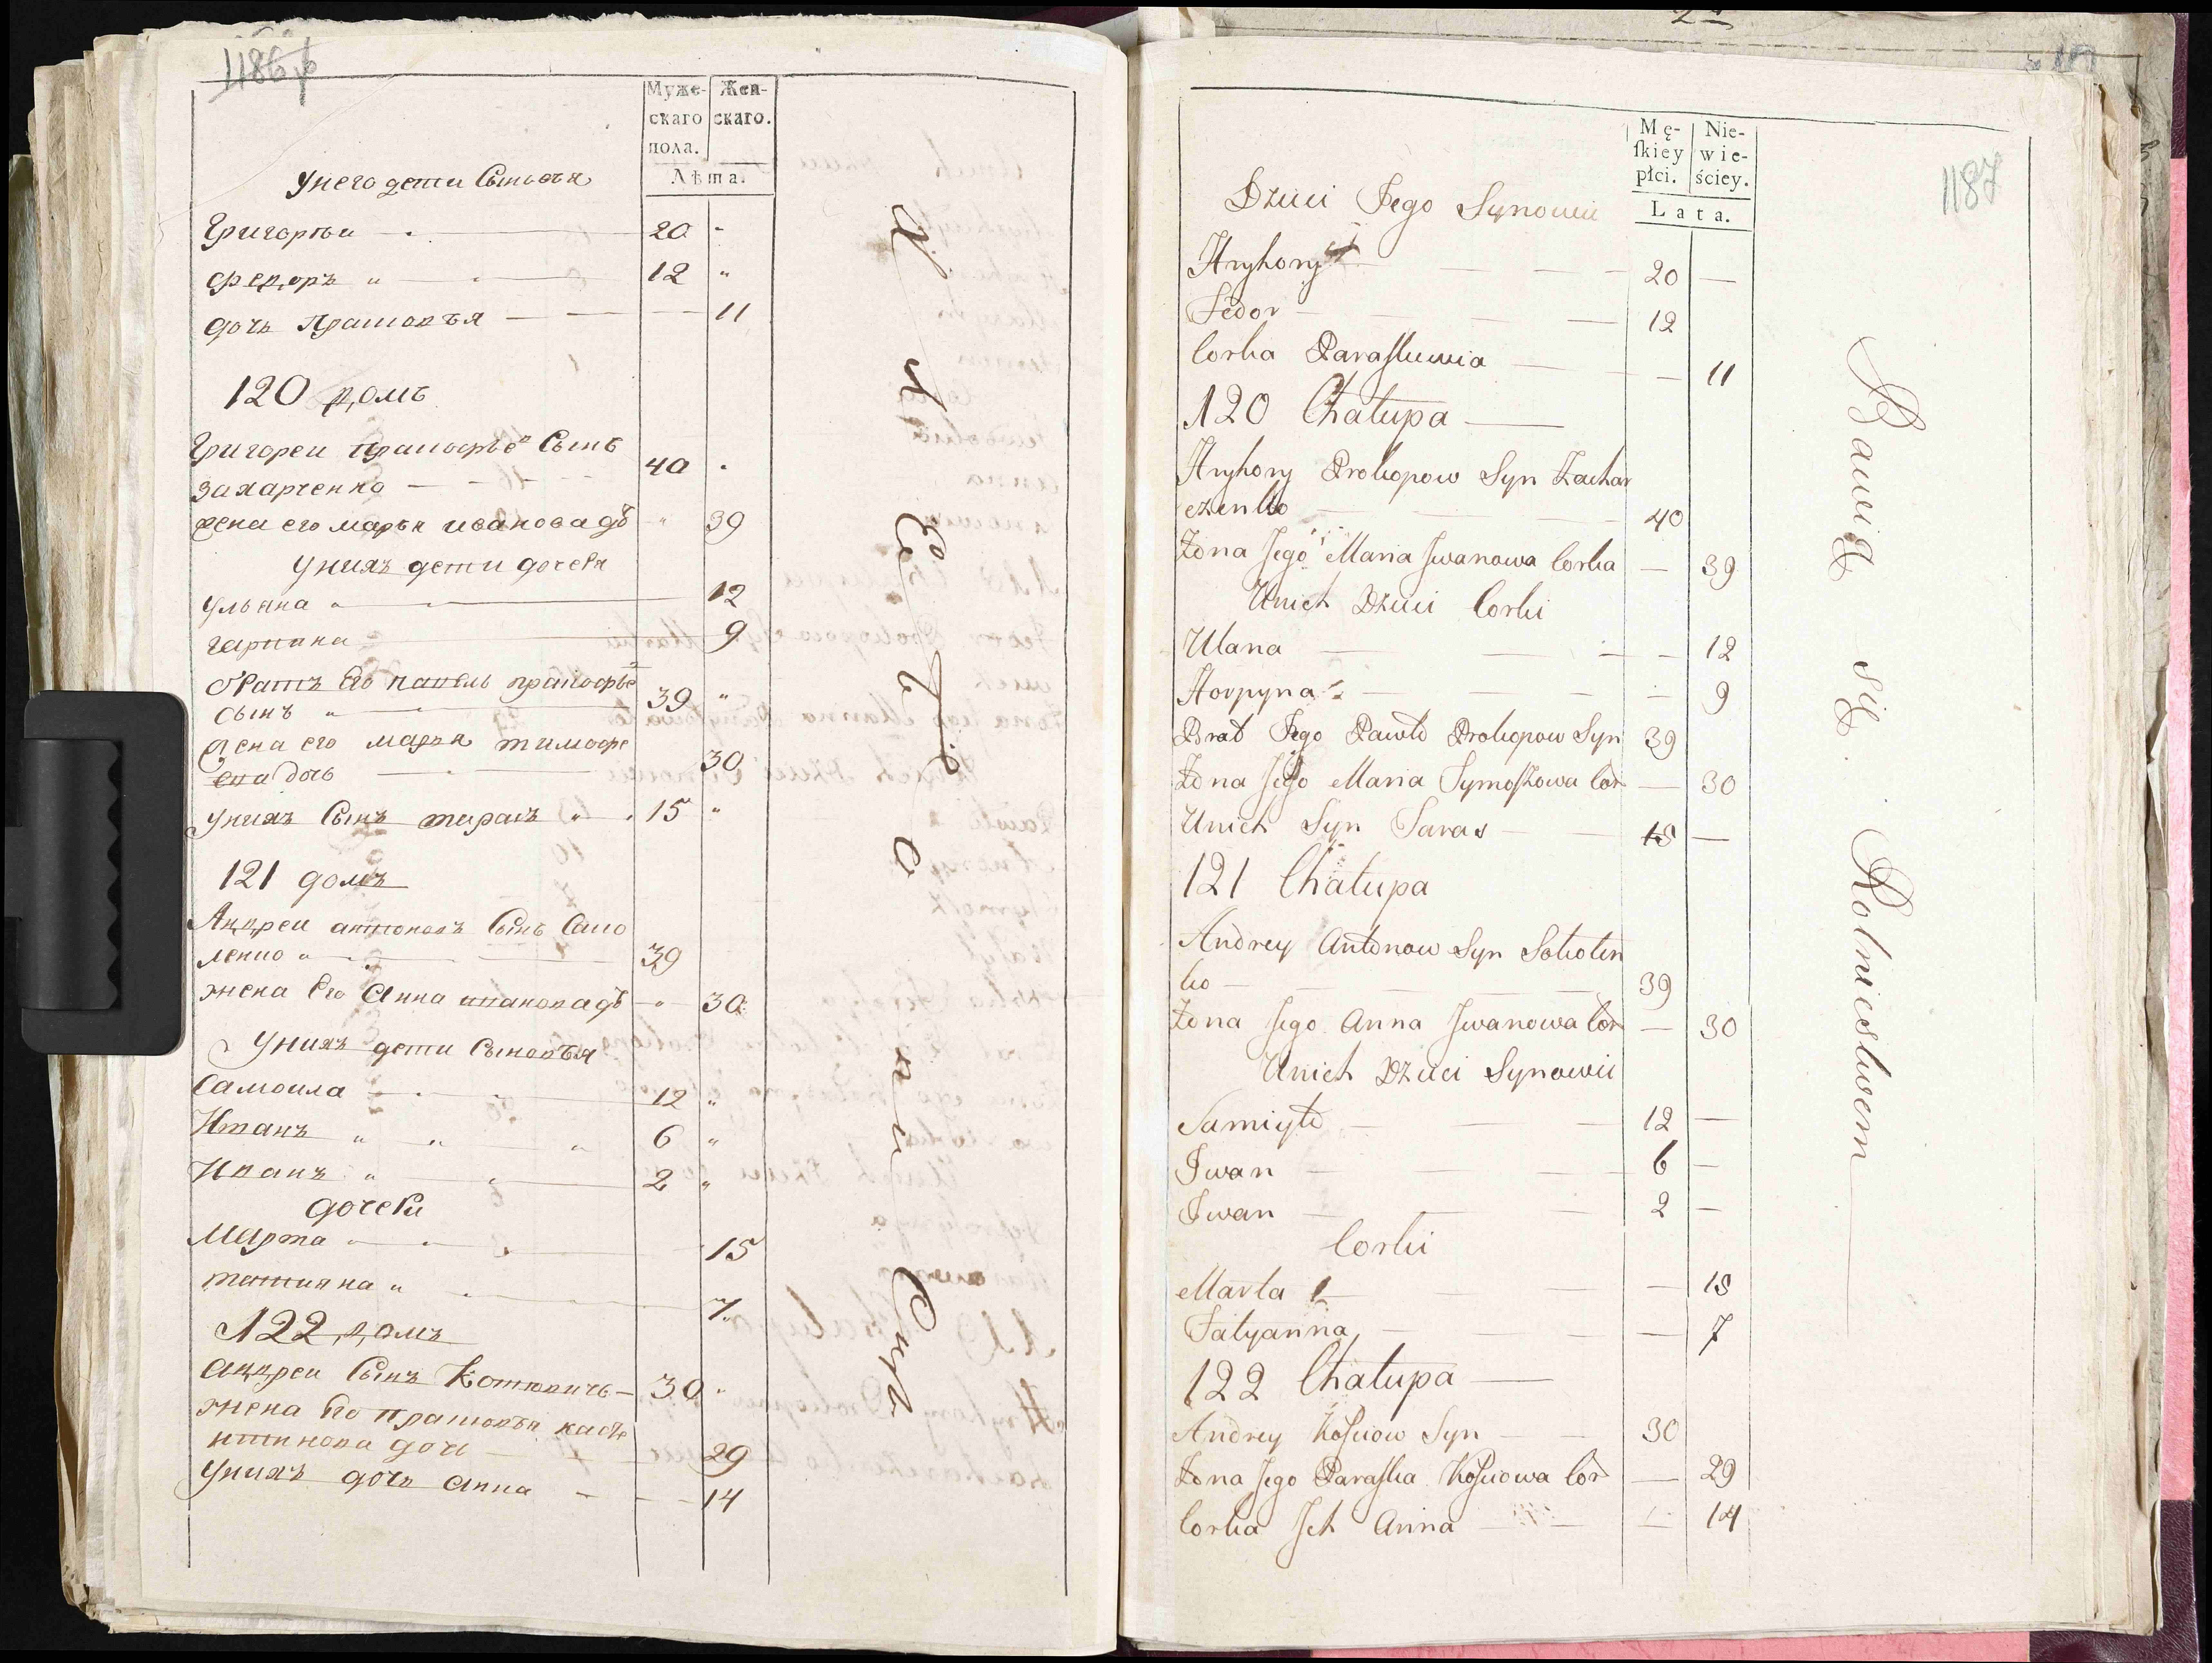 1186
Муже-
скаго
пола.
Жен-
скаго.
Лѣта.
Унего дети Сыновья
Григорѣи 20
Федоръ 12
дочь Прасковъя 11
120 домъ
Григореи Прокофье Сынъ
Захарченко 40
жена его марья ивановадъ 39
Унихъ дети дочерѣи
Ульяна 12
гарпина 9
братъ Его павелъ прокофье
сынъ 39
жена его марья тимофе
ева дочь 30
унихъ Сынъ тарасъ 15
121 домъ
Андреи антоновъ Сынъ Соко
ленко 39
жена Его Анна ивановадъ 30
Унихъ дети Сыновъя
Самоила 12
Иванъ 6
Иванъ 2
дочери
Марта 15
татияна 7
122 домъ
андреи Сынъ 30
жена Его прасковъя
дочь 29
Унихъ дочь анна 14
1187
Mę-
ſkiey
płci.
Nie-
wie-
ściey.
Lata.
Dzieci Jego Synowie
Hryhory 20 —
Fedor 12
Corka Paraſkewia — 11
120 Chałupa
Hryhory Prokopow Syn Zachar
czenko 40
Żona Jego Maria Jwanowa Corka — 39
Unich Dzieci Corki
Ulana — 12
Horpyna — 9
Brat Jego Pawło Prokopow Syn 39
Żona Jego Maria Tymoſzowa Cor — 30
Unich Syn Taras 15 —
121 Chałupa
Andrey Antonow Syn Sokolen
ko 39
Żona Jego Anna Jwanowa Cor — 30
Unich Dzieci Synowie
Samiyło 12 —
Jwan 6 —
Jwan 2 —
Corki
Marta — 15
Tatyanna — 7
122 Chałupa
Andrey Koſciow Syn 30
Żona Jego Paraſka Koſciowa Cor — 29
Corka Jch Anna — 14
Bawią się Rolnictwem